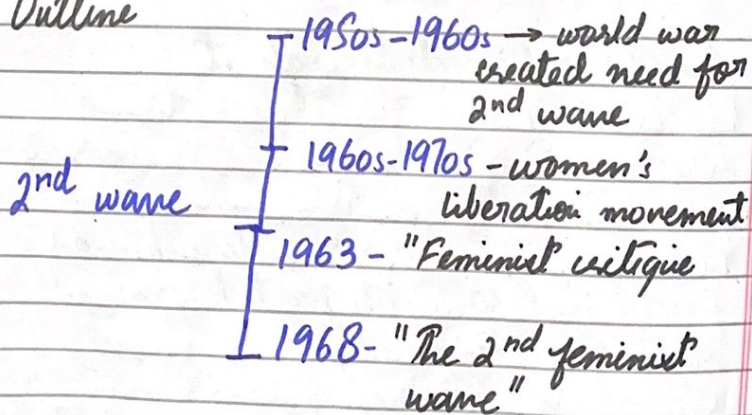 Outline
1950s-1960s → world war
created need for
2nd wave
1960s-1970s - women's
liberation movement
2nd wave
1963 - "Feminist critique
1968- "The 2nd feminist
wave"